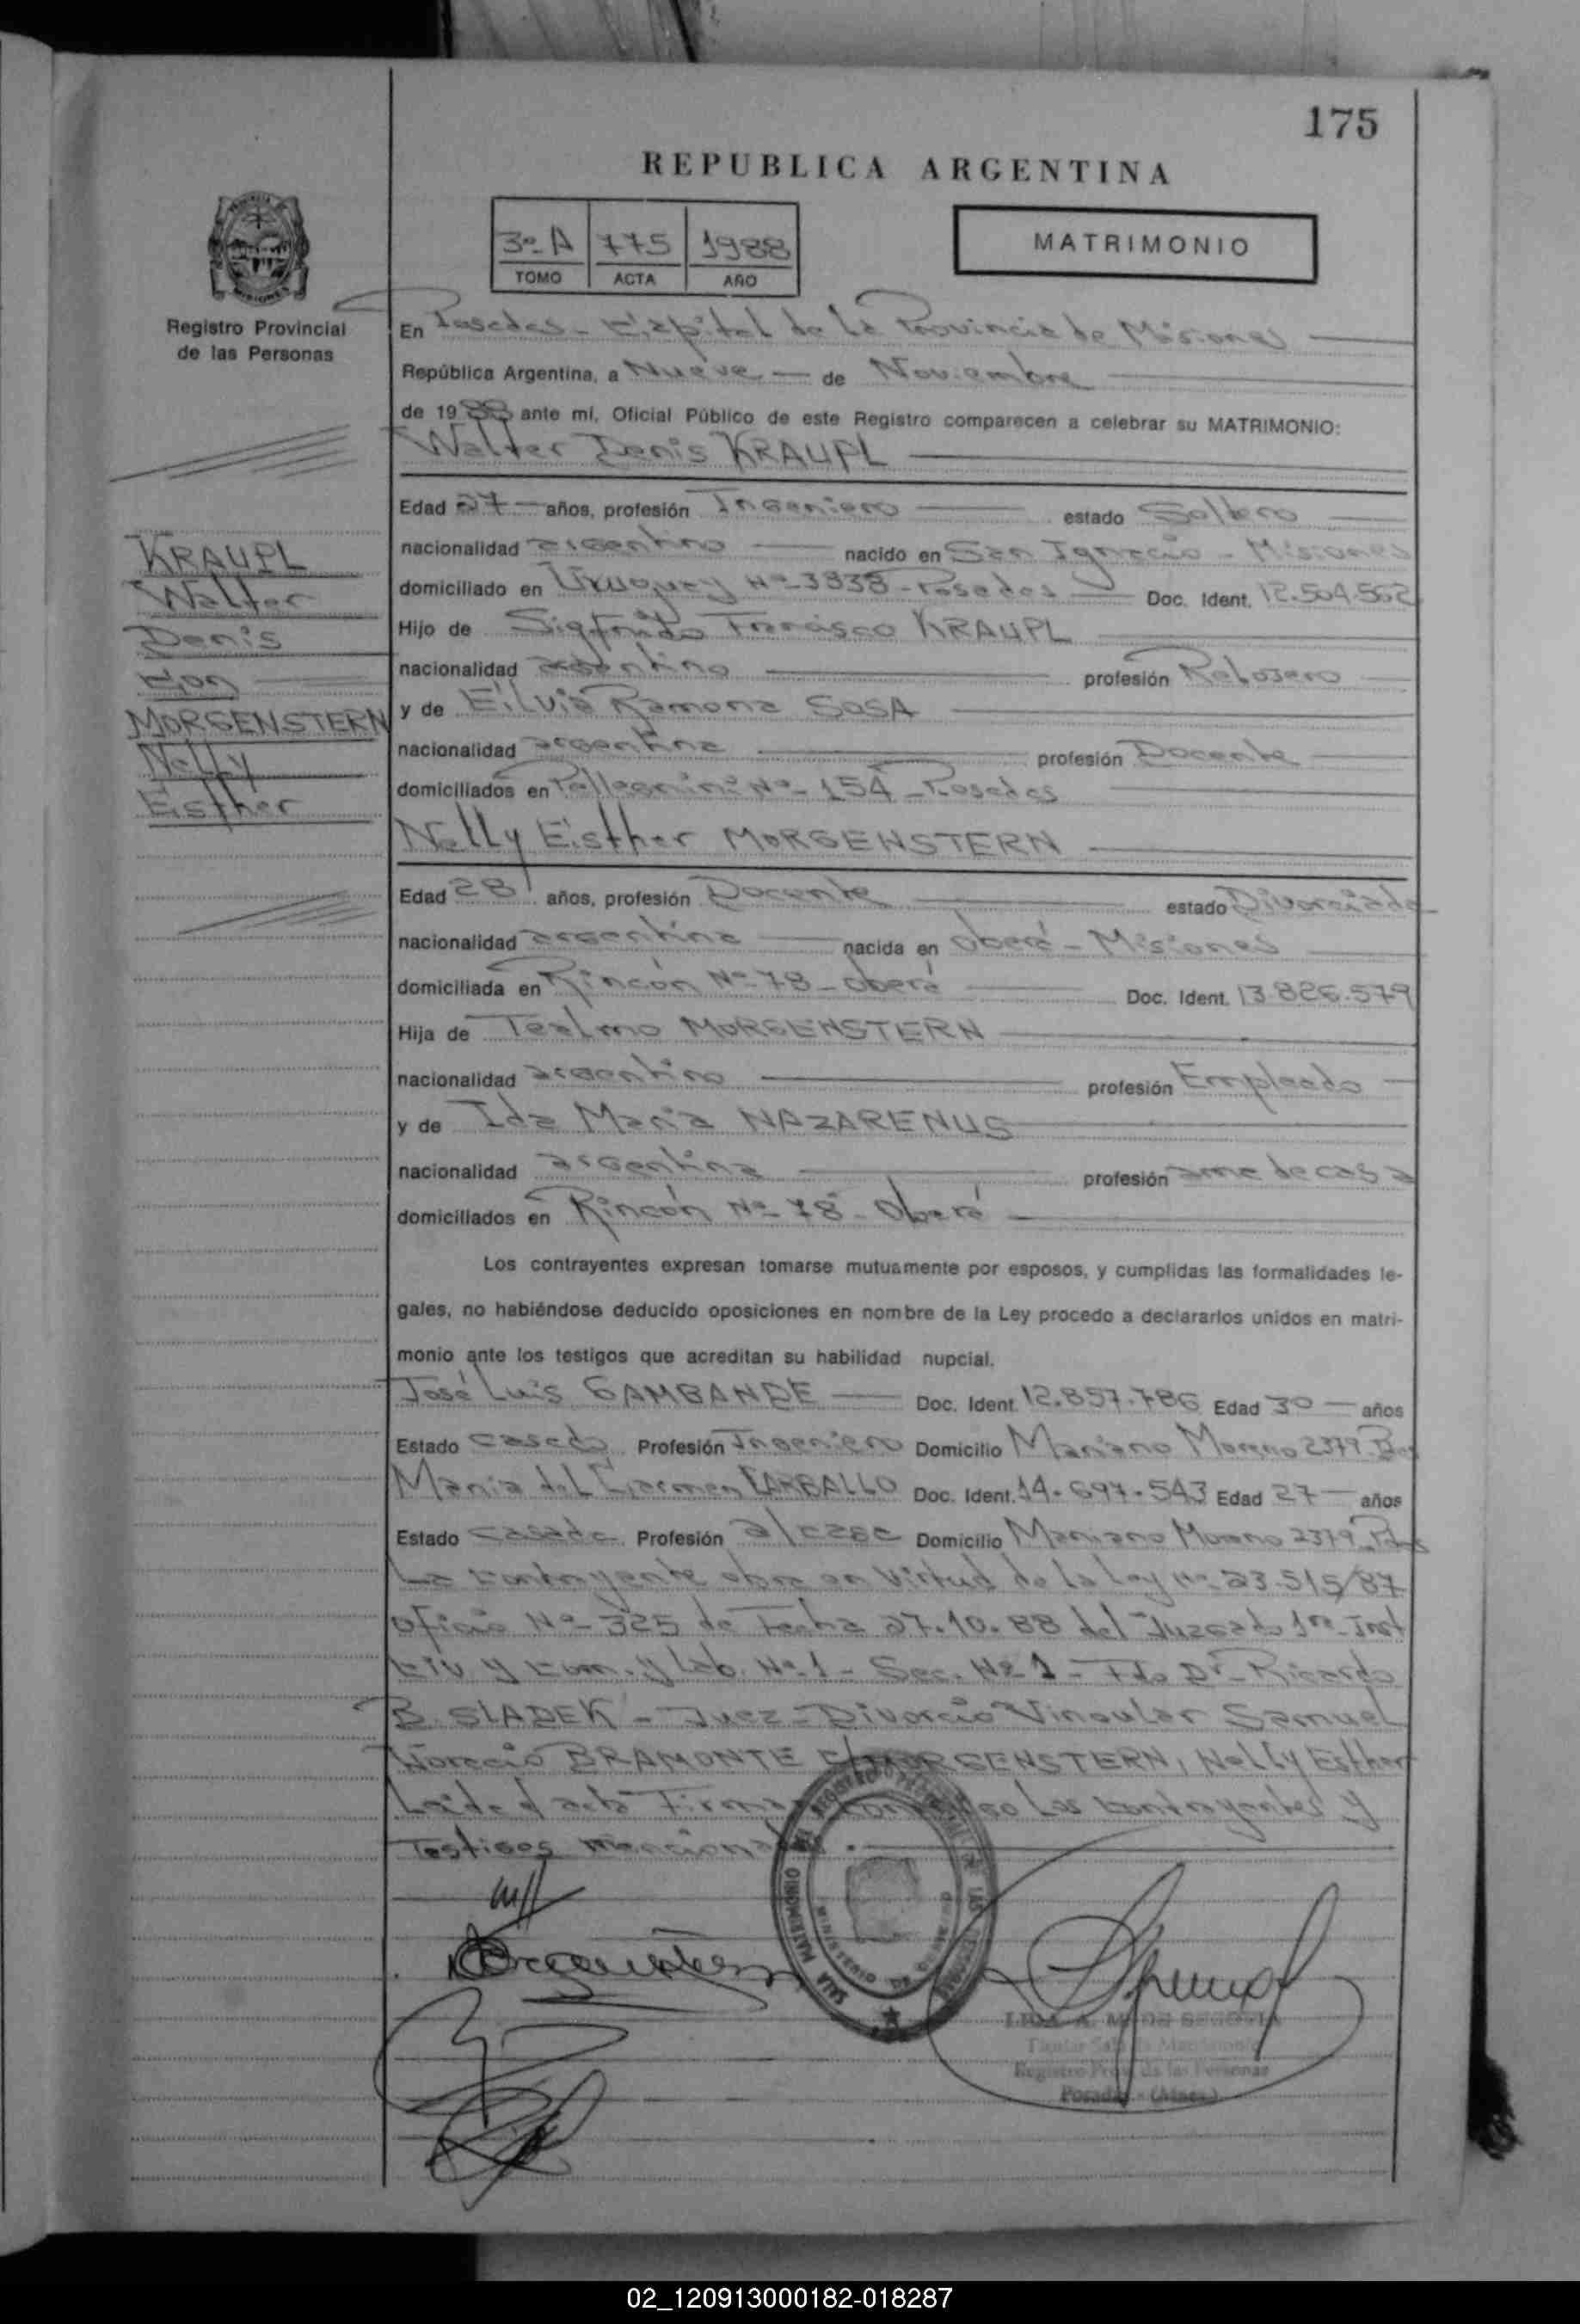 175
REPUBLICA ARGENTINA
3º A 775 1988
TOMO ACTA AÑO
MATRIMONIO
Registro Provincial
de las Personas
En Posadas - Capital de la Provincia de Misiones
República Argentina, a Nueve de Noviembre
de 1988 ante mí, Oficial Público de este Registro comparecen a celebrar su MATRIMONIO:
Walter Denis KRAUPL
Edad 27 años, profesión Ingeniero estado Soltero
nacionalidad argentino nacido en San Ignacio - Misiones
domiciliado en Uruguay Nº 3838 - Posadas Doc. Ident. 12.504.562
Hijo de Sigfrido Francisco KRAUPL
nacionalidad argentino profesión
y de Elvia Ramona SOSA
nacionalidad argentina profesión Docente
domiciliados en Pellegrini Nº 154 - Posadas
KRAUPL
Walter
Denis
con
MORGENSTERN
Nelly
Esther
Nelly Esther MORGENSTERN
Edad 28 años, profesión Docente estado Divorciada
nacionalidad argentina nacida en Oberá - Misiones
domiciliada en Rincón Nº 78 - Oberá Doc. Ident. 13.826.579
Hija de Tealmo MORGENSTERN
nacionalidad argentino profesión Empleado
y de Ida María NAZARENUS
nacionalidad argentina profesión ama de casa
domiciliados en Rincón Nº 78 - Oberá
Los contrayentes expresan tomarse mutuamente por esposos, y cumplidas las formalidades le-
gales, no habiéndose deducido oposiciones en nombre de la Ley procedo a declararlos unidos en matri-
monio ante los testigos que acreditan su habilidad nupcial.
José Luis GAMBANDE Doc. Ident. 12.857.786 Edad 30 años
Estado casado Profesión Ingeniero Domicilio Mariano Moreno 2379 Pdas
María del Carmen CARBALLO Doc. Ident. 14.697.543 Edad 27 años
Estado casada Profesión a/casa Domicilio Mariano Moreno 2379 Pdas
La contrayente obra en virtud de la Ley Nº 23.515/87
Oficio Nº 325 de Fecha 27.10.88 del Juzgado 1ra Inst
Civ. y Com. y Lab. Nº 1 - Sec. Nº 1 - Fdo Dr. Ricardo
B. SLADEK - Juez - Divorcio Vincular Samuel
Horacio BRAMONTE c/ MORGENSTERN, Nelly Esther
Leída el acta Firman conmigo los contrayentes y
Testigos mencionados.
REGISTRO PROVINCIAL DE LAS PERSONAS
SALA MATRIMONIO
MINISTERIO DE GOBIERNO
LIDIA A. M. DE SEGOVIA
Titular Sala de Matrimonio
Registro Prov. de las Personas
Posadas - (Mnes.)
02_120913000182-018287